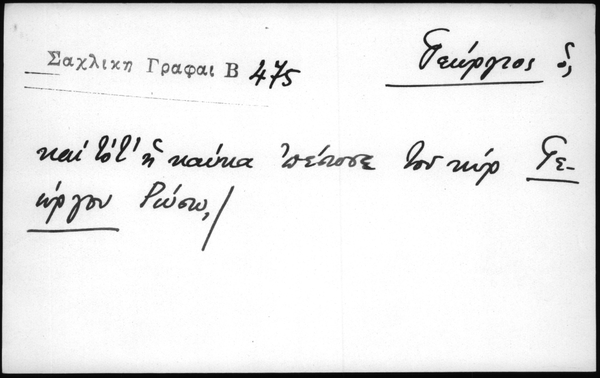 Σαχλικη Γραφαι Β 475
Γεώργιος ὁ,
καὶ τότ' ἡ καύκα ἔπεψε τον κύρ Γε-
ώργον